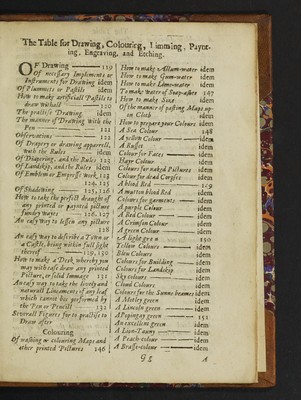 The Table for Drawing, Colouring, Limming, Paynt-
ing, Engraving, and Etching.
OF Drawing 119
Of necessary Implements or
Instruments for Drawing idem
Of Plummets or Pastils idem
How to make artificiall Pastils to
draw withall 120
The practise Drawing idem
The manner of Drawing with the
Pen 121
Observations
Of Drapery or drawing apparell,
with the Rules idem
Of Diapering, and the Rules 122
Of Landskip, and the Rules idem
Of Emblem or Empresse work, 123
124, 125
Of Shadowing 125, 126
How to take the perfect draught of
any printed or painted picture
sundry wayes 126, 127
An easy way to lessen any picture
128
An easy way to describe a Town or
a Castle, being within full sight
thereof 129, 130
How to make a Desk whereby you
may with ease draw any printed
Picture, or solid Immage 131
An easy way to take the lively and
naturall Lineaments of any leaf
which cannot be performed by
the Pen or Pencill 132
Severall Figures for to practise to
Draw after
Colouring
Of washing or colouring Maps and
other printed Pictures 146
How to make Allum-water idem
How to make Gum-water idem
How to make Lime-water idem
To make water of Soap-ashes 147
How to make Size idem
Of the manner of pasting Maps up-
on Cloth idem
How to prepare your Colours idem
A Sea Colour 148
A yellow Colour idem
A Russet idem
Colour for Fates idem
Hayr Colour idem
Colours for naked Pictures idem
Colour for dead Corpses idem
A blood Red 149
A mutton blood Red idem
Colours for garments idem
A purple Colour idem
A Red Colour idem
A Crimson Colour idem
A green Colour idem
A light green 150
Yellow Colours idem
Blew Colours idem
Colours for Building idem
Colours for Landskip idem
Sky colours idem
Cloud Colours idem
Colours for the Sunne beames idem
A Motley green idem
A Lincoln green idem
A Popingay green 151
An excellent green idem
A Lion-Tauny idem
A Peach-colour idem
A Brasse-colour idem
G g A